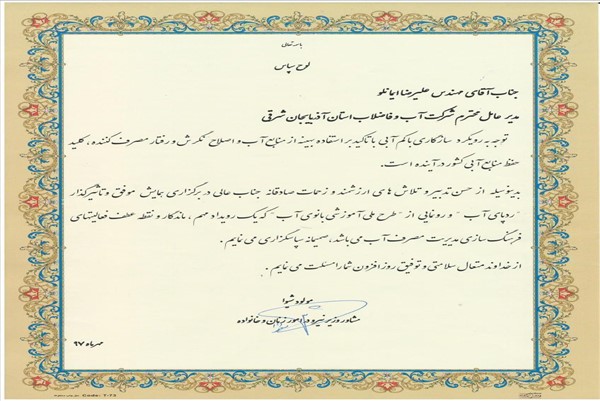 باسمه تعالی
لوح سپاس
جناب آقای مهندس علیرضا ایمانلو
مدیر عامل محترم شرکت آب و فاضلاب استان آذربایجان شرقی
توجه به رویکرد سازگاری با کم آبی با تاکید بر استفاده بهینه از منابع آب و اصلاح نگرش و رفتار مصرف کننده، کلید
حفظ منابع آبی کشور در آینده است.
بدینوسیله از حسن تدبیر و تلاش های ارزشمند و زحمات صادقانه جناب عالی در برگزاری همایش موفق و تاثیرگذار
"ردپای آب" و رونمایی از "طرح ملی آموزشی بانوی آب" که یک رویداد مهم، ماندگار و نقطه عطف فعالیتهای
فرهنگ سازی مدیریت مصرف آب می باشد، صمیمانه سپاسگزاری می نمایم.
از خداوند متعال سلامتی و توفیق روز افزون شما را مسئلت می نمایم.
مولود شیوا
مشاور وزیر نیرو در امور زنان و خانواده
مهر ماه ۹۷
Code: T-73